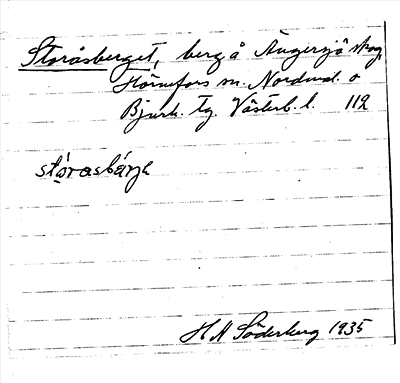 Storåsberget, berg å Ängersjö skog,
Hörnefors sn. Nordmal. o
Bjurh. tg. Västerb. l. 112
stórasbárjə
H A Söderberg 1935